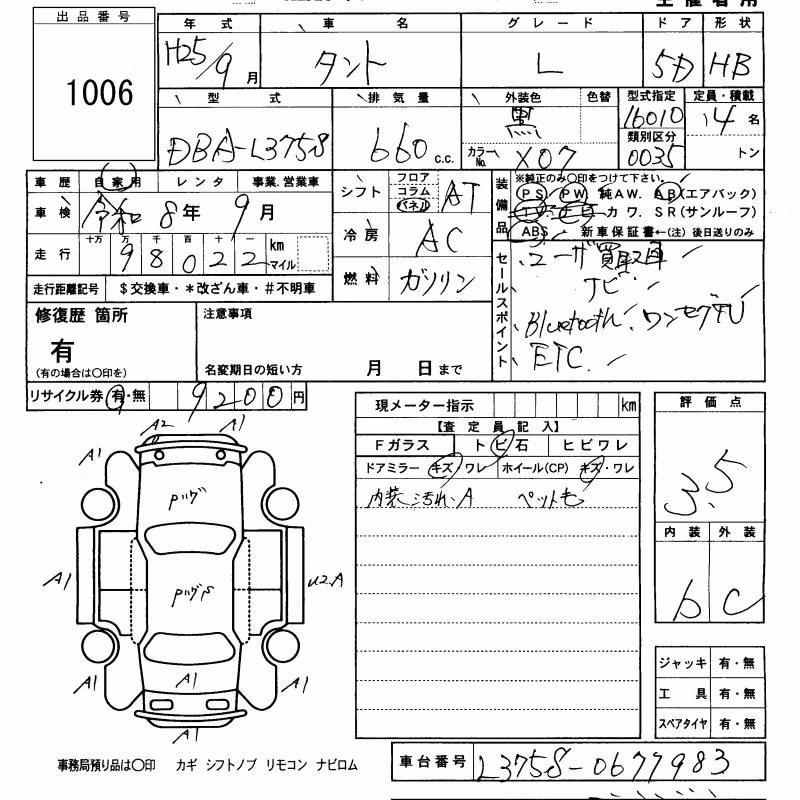 出品番号
1006
年式 車名 グレード ドア 形状
H25/9月 タント L 5D HB
型式 排気量 外装色 色替 型式指定 定員・積載
DBA-L375S 660c.c. 黒 16010 4名
カラーNo. X07 類別区分 0035 トン
車歴 自家用 レンタ 事業.営業車
車検 令和8年9月
走行 十万 万 千 百 十 一 km マイル
98022
走行距離記号 $交換車・*改ざん車・#不明車
シフト フロア コラム パネル AT
冷房 AC
燃料 ガソリン
装備品 ※純正のみ○印をつけて下さい。
PS PW 純AW. AB(エアバック)
カワ. SR(サンルーフ)
ABS 新車保証書←(注)後日送りのみ
セールスポイント
ユーザ買取車
ナビ
Bluetooth. ワンセグTV
ETC.
修復歴 箇所
有
(有の場合は○印を)
注意事項
名変期日の短い方 月 日まで
リサイクル券 有・無 9200円
現メーター指示 km
【査定員記入】
Fガラス トビ石 ヒビワレ
ドアミラー キズ・ワレ ホイール(CP) キズ・ワレ
内装 汚れ.A ペット毛
評価点
3.5
内装 外装
b C
A2 A1
A1 A1
Pツグ
A1 PツグS U2.A
A1
A1 A1
A1
ジャッキ 有・無
工具 有・無
スペアタイヤ 有・無
事務局預り品は○印 カギ シフトノブ リモコン ナビロム
車台番号 L375S-0677983